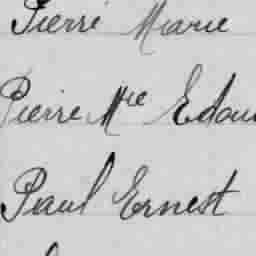 Pierre Marie
Pierre Mie Edou
Paul Ernest